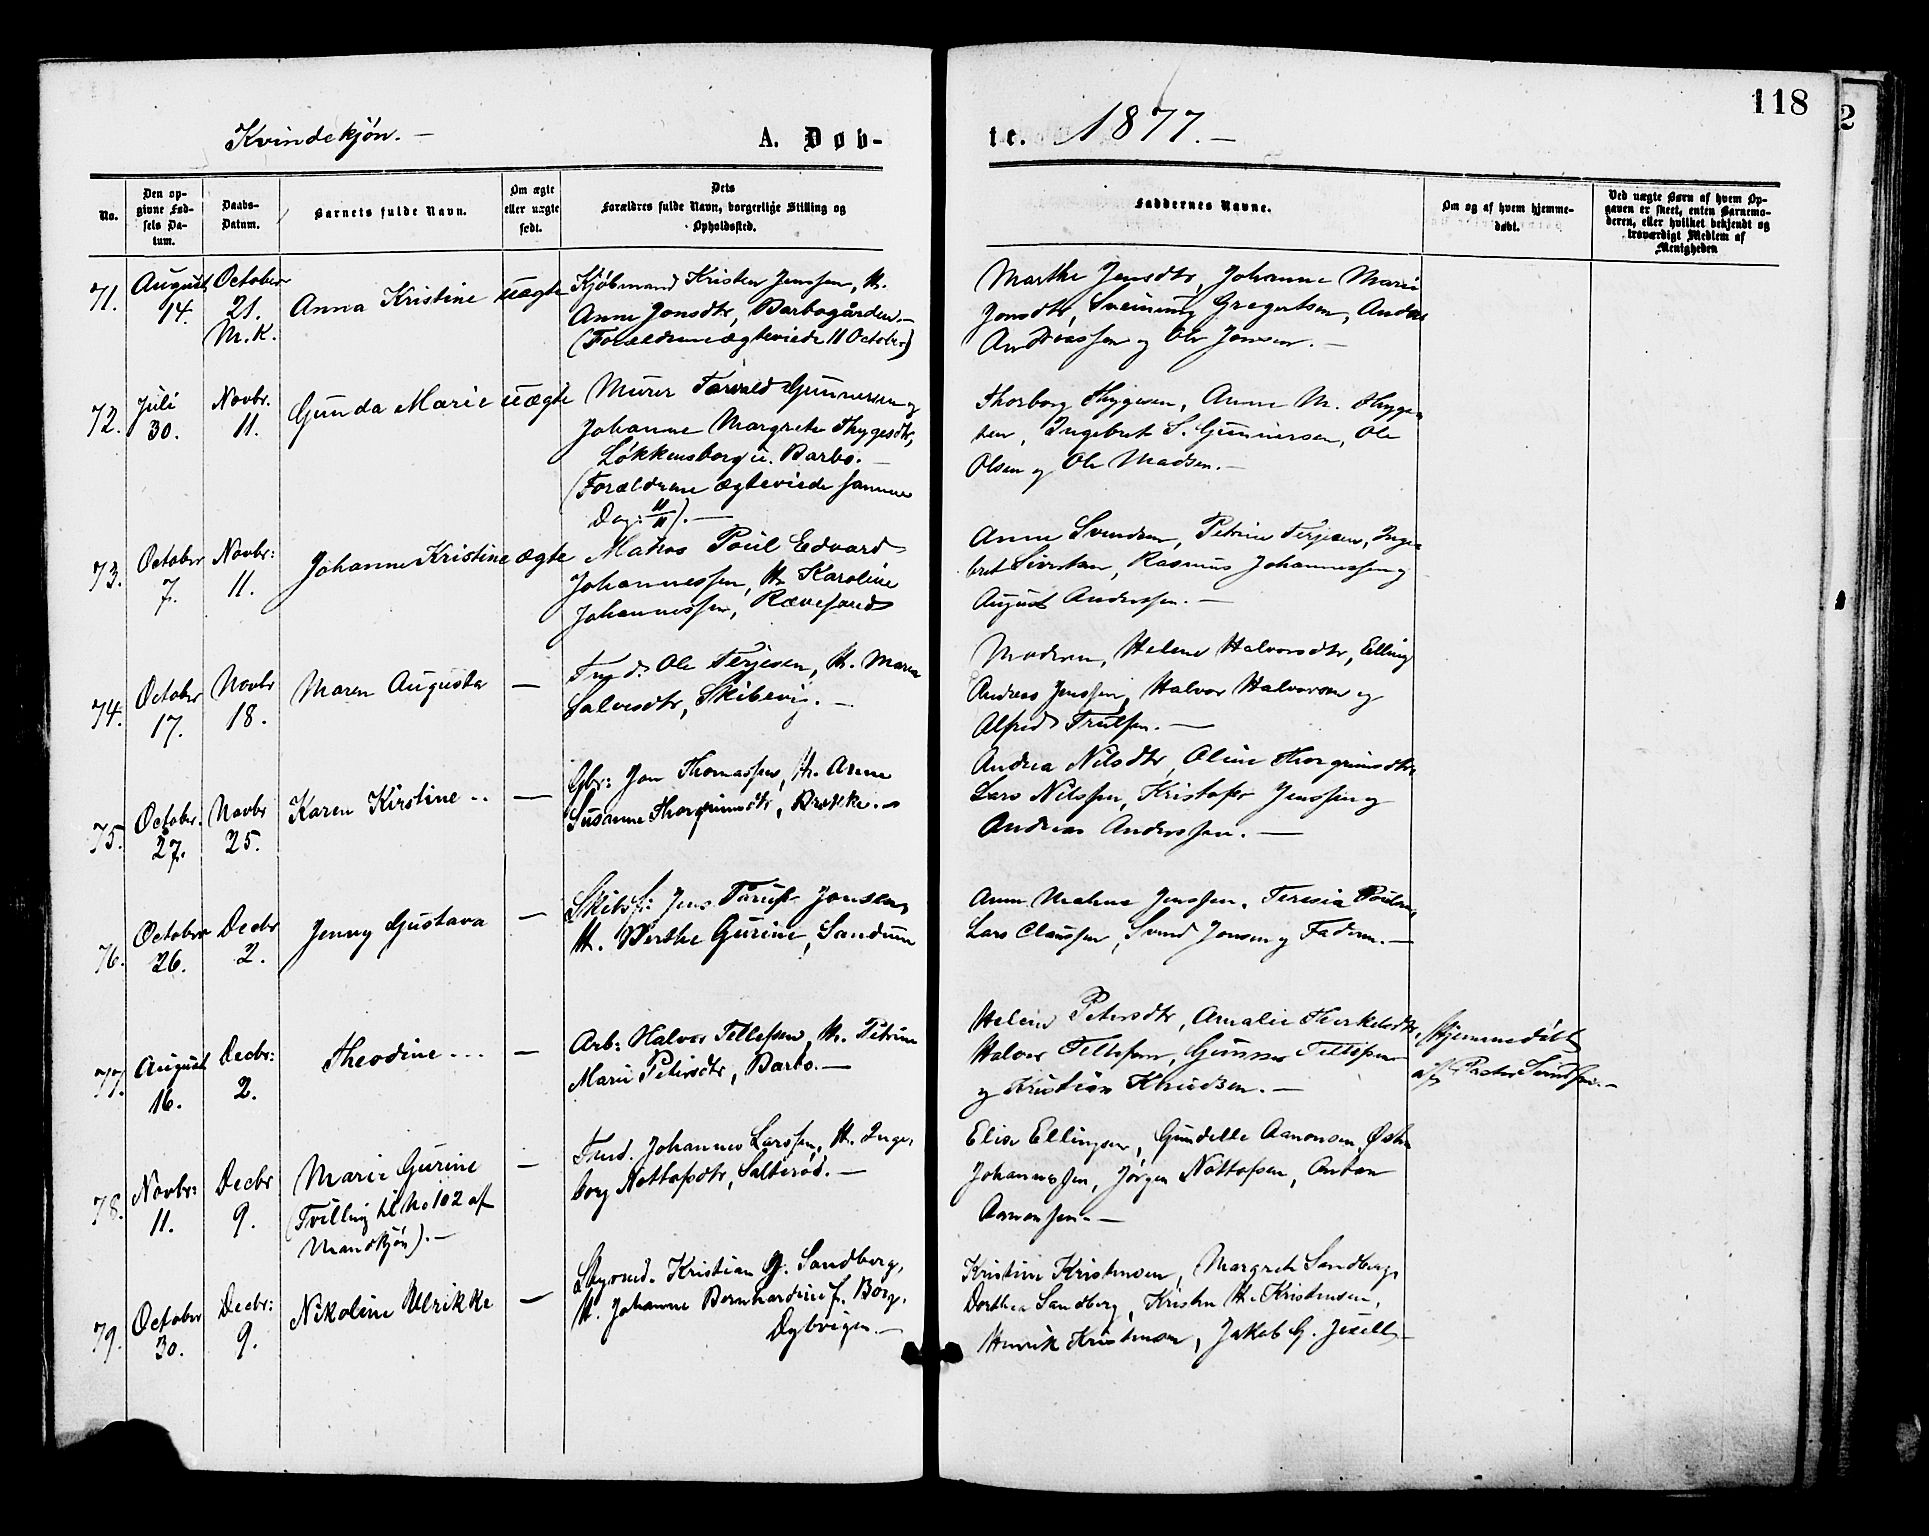 118
2
Kvindekjøn. — A. Døb- te. 1877. —
No.
Den op-
givne Fød-
sels Da-
tum.
Daabs-
Datum.
Barnets fulde Navn.
Om ægte
eller uægte
født.
Dets
Forældres fulde Navn, borgerlige Stilling og
Opholdssted.
Faddernes Navne.
Om og af hvem hjemme-
døbt.
Ved uægte Børn af hvem Op-
gaven er skeet, enten Barnemo-
deren, eller hvilket bekjendt og
troværdigt Medlem af
Menigheden
71.
August
14.
October
21.
M.K.
Anna Kristine
uægte
Kjøbmand Kristen Jenssen, H.
Anne Jonsdtr, Barbogården. —
(Forældrene ægteviede 11 October)
Marthe Jensdtr, Johanne Marie
Jonsdtr, Sveinung Gregertsen, Andres
Andreassen og Ole Jonsen. —
72.
Juli
30.
Novbr.
11.
Gunda Marie
uægte
Murer Tarald Gunnersen og
Johanne Margrete Thygesdtr,
Løkkensborg u. Barbo. —
(Forældrene ægteviede samme
Dag: 11/11). —
Thorborg Thygesen, Anne M. Thyge-
sen, Ingebret S. Gunnersen, Ole
Olsen og Ole Madsen. —
73.
October
7.
Novbr:
11.
Johanne Kristine
ægte
Matros Poul Edvard
Johannessen, H. Karoline
Johannessen, Rævesand
Anne Svendsen, Petrine Terjesen, Inge-
bret Sivertsen, Rasmus Johannessen og
August Anderssen. —
74.
October
17.
Novbr
18.
Maren Augusta
—
Tmd. Ole Terjesen, H. Maren
Salvesdtr, Skibevig. —
Moderen, Helene Halvorsdtr, Elling
Andreas Jenssen, Halvor Halvorsen og
Alfred Trulsen. —
75.
Octobr.
27.
Novbr
25.
Karen Kirstine ..
—
Gbr: Jon Thomassen, H. Anne
Susanne Thorgrimsdtr, Brække. —
Andrea Nilsdtr, Oline Thorgrimsdtr,
Lars Nilssen, Kristofer Jenssen og
Andreas Anderssen. —
76.
October
26.
Decbr
2.
Jenny Gustava
—
Skibsf: Jens Tarup Jonsen,
H. Berthe Gurine, Sandum
Anne Malene Jenssen, Teresia Poulsen,
Lars Claussen, Svend Jonsen og Faderen. —
77.
August
16.
Decbr:
2.
Theodine ...
—
Arb: Halvor Tellefsen, H. Petrine
Marie Petersdtr, Barbo. —
Helene Petersdtr, Amalie Therkelsdtr,
Halvor Tellefsen, Gunner Tellefsen
og Kristian Knudsen. —
Hjemmedøbt
af Pastor Svendsen. —
78.
Novbr:
11.
Decbr
9.
Marie Gurine
(Tvilling til No 102 af
Mandkjøn). —
—
Tmd. Johannes Larssen, H. Inge-
borg Nottolfsdtr, Salterød. —
Elise Ellingsen, Gundelle Aanonsen, Østen
Johannessen, Jørgen Nottolfsen, Anton
Aanonsen. —
79.
October
30.
Decbr:
9.
Nikoline Ulrikke
—
Styrmd. Kristian G. Sandberg,
H. Johanne Bernhardine f. Borg,
Dybvigen. —
Kristine Kristensen, Margrete Sandberg,
Dorthea Sandberg, Kristen H. Kristensen,
Henrik Kristensen, Jakob G.